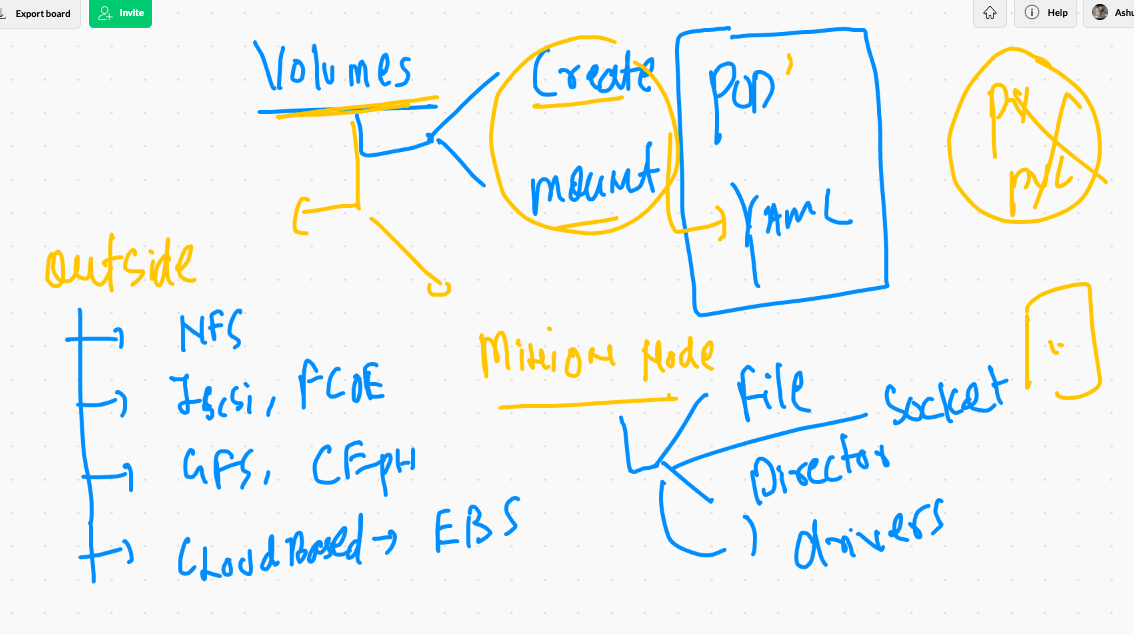 Export board
Invite
Help
Ashu
Volumes
Create
mount
POD
YAML
PV
PVC
outside
NFS
Iscsi, FCOE
GFS, CEPH
CLoud Based → EBS
Minion Node
File
Socket
Director
drivers